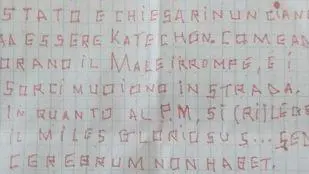 STATO E CHIESA RINUNCIANO
AD ESSERE KATECHON. COM E AD
ORANO IL MALE IRROMPE, E I
SORCI MUOIONO IN STRADA.
IN QUANTO AL P.M, SI (RI)LEGE
IL MILES GLORIOSUS... SED
CEREBRUM NON HABET.